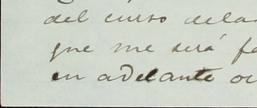 del curso de la
que me será fa
en adelante oc